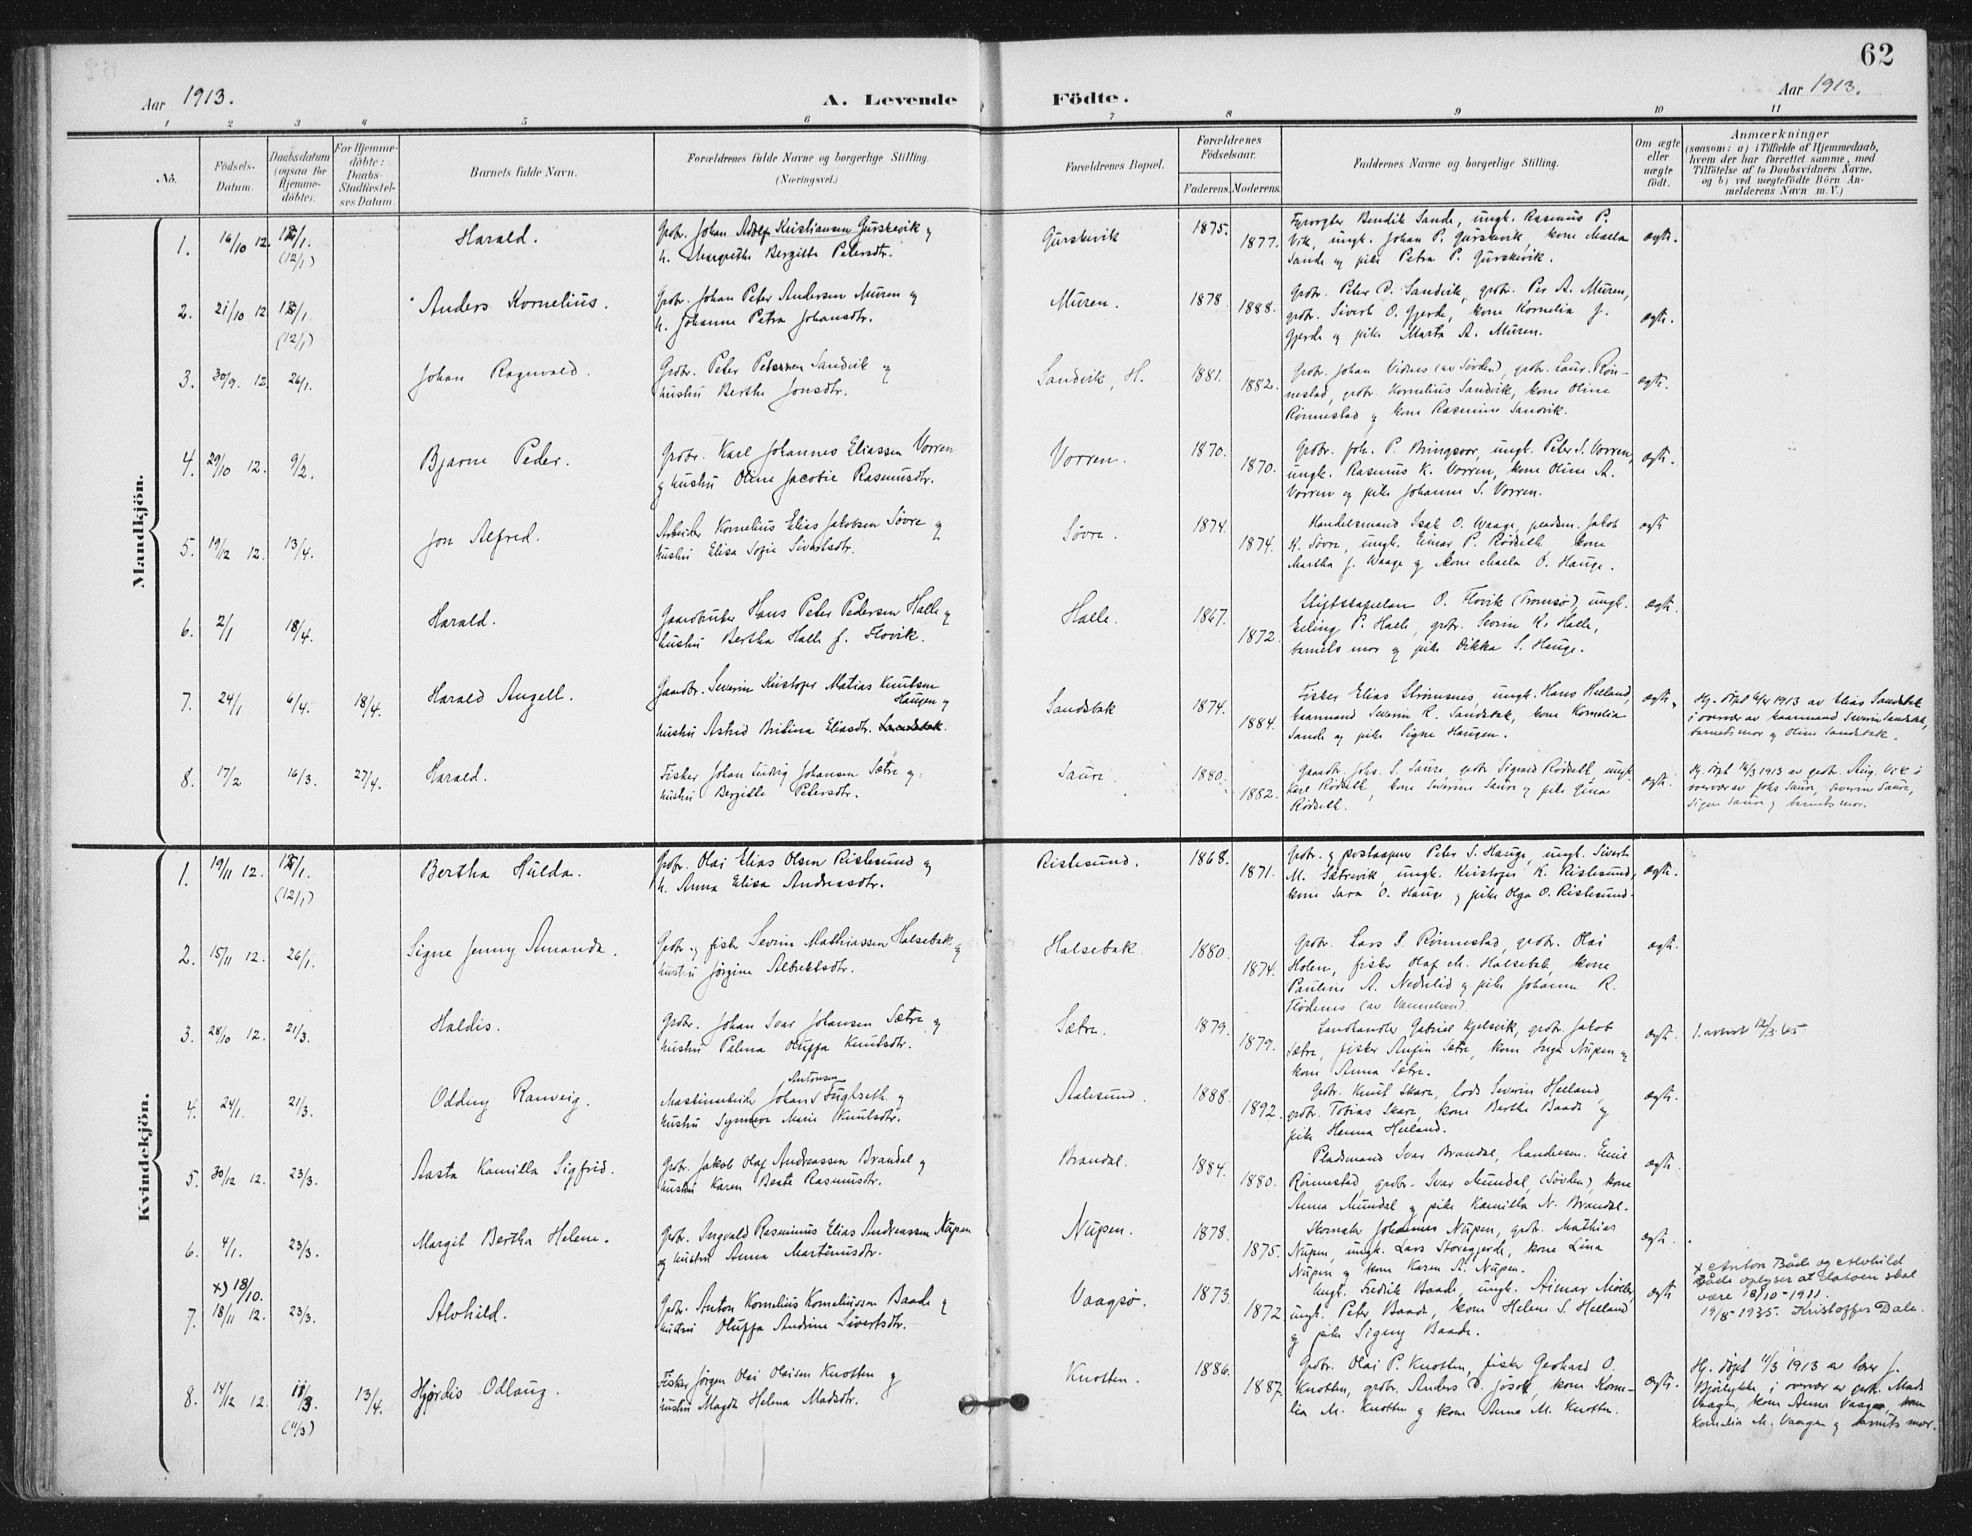 62
Aar 1913.
A. Levende
Födte.
Aar 1913.
1 2 3 4 5 6 7 8 9 10 11
No.
Födsels-
Datum.
Daabsdatum
(ogsaa for
Hjemme-
döbte).
For Hjemme-
döbte:
Daabs-
Stadfæstel-
ses Datum.
Barnets fulde Navn.
Forældrenes fulde Navne og borgerlige Stilling.
(Næringsvei.)
Forældrenes Bopæl.
Forældrenes
Födselsaar.
Faderens.
Moderens.
Faddernes Navne og borgerlige Stilling.
Om ægte
eller
uægte
födt.
Anmærkninger
(saasom: a) i Tilfælde af Hjemmedaab,
hvem der har forrettet samme, med
Tilföielse af to Daabsvidners Navne,
og b) ved uægtefödte Börn An-
melderens Navn m. V.)
Mandkjön.
1. 16/10 12. (12/1)
Harald.
Gbr. Johan Adolf Kristiansen Gurskevik og
h. Margrethe Bergitte Petersdtr.
Gurskevik
1875.
1877.
Fyrvogter Bendik Sande, ungk. Rasmus P.
Vik, ungk. Johan P. Gurskevik, kone Maela
Sande og pike Petra P. Gurskevik.
ægte.
2. 21/10 12. (12/1)
Anders Kornelius.
Gbr. Johan Peter Andersen Muren og
h. Johanne Petra Johansdtr.
Muren.
1878.
1888.
gbr. Peter O. Sandvik, gbr. Per A. Muren,
gbr. Sivert O. Gjerde, kone Kornelia J.
Gjerde og pike Marta A. Muren.
ægte.
3. 30/9. 12. 26/1.
Johan Ragnvald.
Gbr. Peter Petersen Sandvik og
hustru Berthe Jonsdtr.
Sandvik, H.
1881.
1882.
Gbr. Johan Vidnes (av Søvden), gbr. Laur. Røn-
nestad, gbr. Kornelius Sandvik, kone Oline
Rønnestad og kone Rasmine Sandvik.
ægte.
4. 29/10 12. 9/2.
Bjarne Peder.
Gbr. Karl Johannes Eliassen Vorren
og hustru Oline Jacobie Rasmusdtr.
Vorren.
1870.
1870.
Gbr. Joh. P. Bringsvor, ungk. Peter S. Vorren,
ungk. Rasmus K. Vorren, kone Oline A.
Vorren og pike Johanne S. Vorren.
ægte.
5. 19/12 12. 13/4.
Jon Alfred.
Arbeider Kornelius Elias Jakobsen Søvre og
hustru Elisa Sofie Sivertsdtr.
Søvre.
1874.
1874.
Handelsmand Isak O. Waage, pladsm. Jakob
K. Søvre, ungk. Einar P. Rødseth kone
Martha J. Waage og kone Maela O. Hauge.
ægte
6. 2/1 18/4.
Harald.
Gaardbruker Hans Peter Pedersen Halle og
hustru Bertha Halle f. Flovik.
Halle.
1867.
1872.
Stiftskapelan O. Flovik (Tromsø), ungk.
Erling P. Halle, gbr. Severin K. Halle,
barnets mor og pike Dikka S. Hauge.
ægte.
7. 24/1 6/4. 18/4.
Harald Angell.
Gaardbr. Severin Kristofer Matias Knutsen
Haugen og
hustru Astrid Britina Eliasdtr.
Sandsbak
1874.
1884.
Fisker Elias Strømsnes, ungk. Hans Heiland,
kaarmand Severin R. Sandsbak, kone Kornelia
Sande og pike Signe Haugen.
ægte.
Hj. døpt 6/4 1913 av Elias Sandsbak
i overvær av kaarmand Severin Sandsbak,
barnets mor og Oline Sandsbak.
8. 17/2 16/3. 27/4.
Harald.
Fisker Johan Ludvig Johansen Sætre og
hustru Bergitte Petersdtr.
Saure.
1880.
1882.
Gaardbr. Johs. S. Saure, gbr. Sigvald Rødseth, ungk.
Karl Rødseth, kone Severine Saure og pike Gina
Rødseth.
ægte.
Hj. døpt 16/3 1913 av gbr. Aug. Vik i
overvær av Johs Saure, Severin Saure,
Signe Saure og barnets mor.
Kvindekjön.
1. 19/11 12. (12/1)
Bertha Hulda.
Gbr. Olai Elias Olsen Ristesund og
h. Anna Elisa Andreasdtr.
Ristesund.
1868.
1871.
Gbr. og postaapner Peter S. Hauge, ungk. Sivert
M. Sætrevik, ungk. Kristofer K. Ristesund,
kone Sara O. Hauge og pike Olga O. Ristesund.
ægte.
2. 15/11 12. 26/1.
Signe Jenny Amanda.
Gbr. og fisker Severin Mathiassen Halsebak og
hustru Jørgine Albrektsdtr.
Halsebak
1880.
1874.
Gbr. Lars S. Rønnestad, gbr. Olai
Holen, fisker Olaf M. Halsebak, kone
Pauline A. Nedrelid og pike Johanne R.
Flødenes (av Vannelven).
ægte.
3. 28/10 12. 21/3.
Haldis.
Gbr. Johan Ivar Johansen Sætre og
hustru Palma Oluffa Knutsdtr.
Sætre.
1879.
1879.
Landhandler Gabriel Kjelsvik, gbr. Jakob
Sætre, fisker Anfin Sætre, kone Inga Nupen og
kone Anna Sætre.
ægte.
1. attest 12/3 45
4. 24/1. 21/3.
Oddny Ranveig.
Antonsen
Maskinarbeider Johan Fuglseth og
hustru Synneva Marie Knutsdtr.
Aalesund.
1888.
1892.
Gbr. Knut Skare, lods Severin Heiland,
gbr. Tobias Skare, kone Berthe Baade og
pike Hanna Heiland.
ægte.
5. 30/12 12. 23/3.
Aasta Kamilla Sigfrid.
Gbr. Jakob Olaf Andreassen Brandal og
hustru Karen Beate Rasmusdtr.
Brandal.
1884.
1880.
Pladsmand Ivar Brandal, handelsm. Emil
Rønnestad, gbr. Ivar Mundal (Søvden), kone
Anna Mundal og pike Kamilla N. Brandal.
ægte.
6. 4/1. 23/3.
Margit Bertha Helene.
Gbr. Ingvald Rasmus Elias Andreassen Nupen
og hustru Anna Martinusdtr.
Nupen.
1878.
1875.
Skomaker Johannes Nupen, gbr. Mathias
Nupen, ungk. Lars Storegjerde, kone Lina
Nupen og kone Karen A. Nupen.
ægte.
7. x) 18/10. 18/11 12. 23/3.
Alvhild.
Gbr. Anton Kornelius Korneliussen Baade og
hustru Oluffa Andrine Sivertsdtr.
Vaagsø.
1873.
1872
Ungk. Fredrik Baade, ungk. Aimar Moltu,
ungk. Peter Baade, kone Helene S. Heiland
og pike Signy Baade.
ægte
x Anton Både og Alvhild
Både oplyser at datoen skal
være 18/10-1911.
19/8-1935. Kristoffer Dale.
8. 14/12 12. 11/3 (11/3) 13/4.
Hjørdis Odlaug.
Fisker Jørgen Olai Olaisen Knotten og
hustru Magda Helena Madsdtr.
Knotten.
1886.
1887.
Gbr. Olai P. Knotten, fisker Gerhard O.
Knotten, gbr. Anders D. Jøsok, kone Korne-
lia M. Knotten og kone Anna M. Knotten.
ægte.
Hj. døpt 11/3 1913 av lærer J.
Bjørlykke i overvær av gbr. Mads
Vaagen, kone Anna Vaagen, kone
Kornelia M. Vaagen og barnets mor.